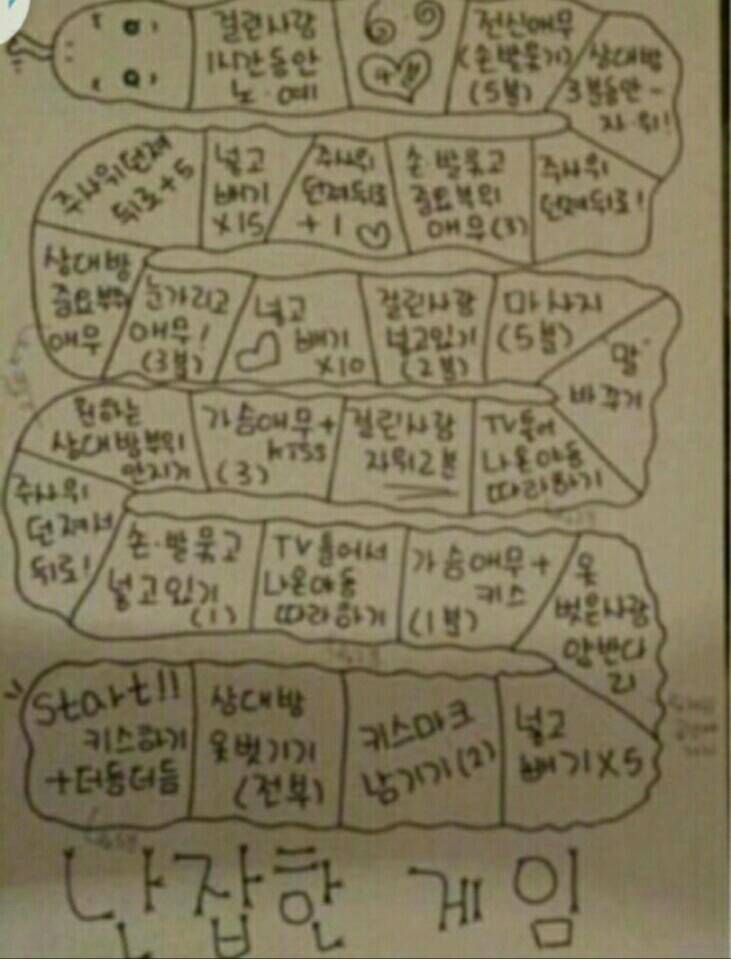 걸린사랑
1시간동안
노·예
69
전신애무
(손발묶기)
(5분)
상대방
3분동안-
자·위!
주사위던져
뒤로+5
넣고
빼기
X15
주사위
던져뒤로
+1
손·발묶고
중요부위
애무(3)
주사위
던져뒤로!
상대방
중요부위
애무
눈가리고
애무!
(3분)
넣고
빼기
X10
걸린사람
넣고있기
(2분)
마사지
(5분)
"말"
바꾸기
원하는
상대방부위
만지기
가슴애무+
kiss
(3)
걸린사람
자위2분
TV틀어
나온야동
따라하기
주사위
던져서
뒤로!
손·발묶고
넣고있기
(1)
TV틀어서
나온야동
따라하기
가슴애무+
키스
(1분)
옷
벗은사람
Start!!
키스하기
+더듬더듬
상대방
옷벗기기
(전부)
키스마크
남기기(2)
넣고
빼기X5
난잡한 게임